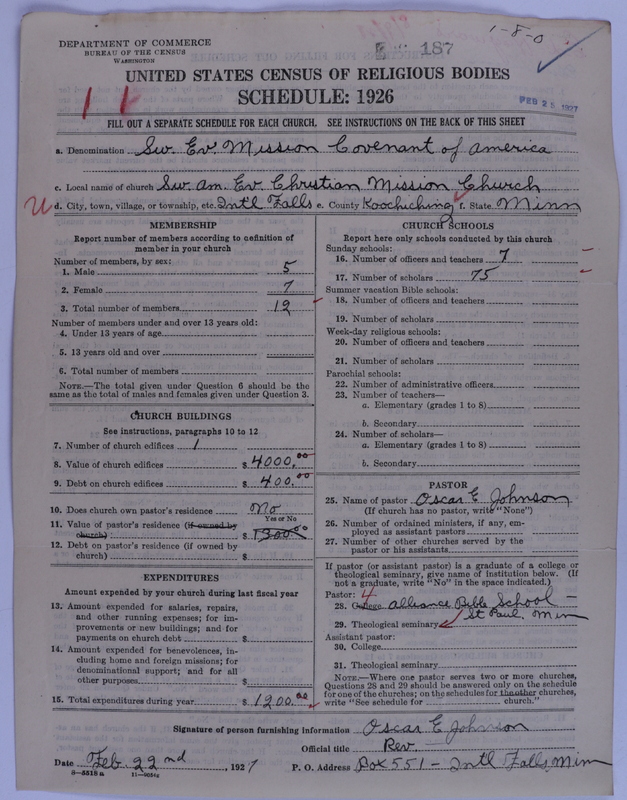 1-8-0
DEPARTMENT OF COMMERCE
BUREAU OF THE CENSUS
WASHINGTON
187
UNITED STATES CENSUS OF RELIGIOUS BODIES
SCHEDULE: 1926
FEB 25 1927
FILL OUT A SEPARATE SCHEDULE FOR EACH CHURCH. SEE INSTRUCTIONS ON THE BACK OF THIS SHEET
a. Denomination Sw. Ev. Mission Covenant of America
c. Local name of church Sw. Am. Ev. Christian Mission Church
d. City, town, village, or township, etc. Intl Falls e. County Koochiching f. State Minn
MEMBERSHIP
Report number of members according to definition of
member in your church
Number of members, by sex:
1. Male 5
2. Female 7
3. Total number of members 12
Number of members under and over 13 years old:
4. Under 13 years of age
5. 13 years old and over
6. Total number of members
NOTE.—The total given under Question 6 should be the
same as the total of males and females given under Question 3.
CHURCH BUILDINGS
See instructions, paragraphs 10 to 12
7. Number of church edifices 1
8. Value of church edifices $ 4000.00
9. Debt on church edifices $ 400.00
10. Does church own pastor's residence No
Yes or No
11. Value of pastor's residence (if owned by
church) $ 1300.00
12. Debt on pastor's residence (if owned by
church) $
EXPENDITURES
Amount expended by your church during last fiscal year
13. Amount expended for salaries, repairs,
and other running expenses; for im-
provements or new buildings; and for
payments on church debt $
14. Amount expended for benevolences, in-
cluding home and foreign missions; for
denominational support; and for all
other purposes $
15. Total expenditures during year $ 1200.00
CHURCH SCHOOLS
Report here only schools conducted by this church
Sunday schools:
16. Number of officers and teachers 7
17. Number of scholars 75
Summer vacation Bible schools:
18. Number of officers and teachers
19. Number of scholars
Week-day religious schools:
20. Number of officers and teachers
21. Number of scholars
Parochial schools:
22. Number of administrative officers
23. Number of teachers—
a. Elementary (grades 1 to 8)
b. Secondary
24. Number of scholars—
a. Elementary (grades 1 to 8)
b. Secondary
PASTOR
25. Name of pastor Oscar E Johnson
(If church has no pastor, write "None")
26. Number of ordained ministers, if any, em-
ployed as assistant pastors
27. Number of other churches served by the
pastor or his assistants
If pastor (or assistant pastor) is a graduate of a college or
theological seminary, give name of institution below. (If
not a graduate, write "No" in the space indicated.)
Pastor: 4
28. College Alliance Bible School —
29. Theological seminary St Paul, Minn
Assistant pastor:
30. College
31. Theological seminary
NOTE.—Where one pastor serves two or more churches,
Questions 28 and 29 should be answered only on the schedule
for one of the churches; on the schedules for the other churches,
write "See schedule for church."
Signature of person furnishing information Oscar E Johnson
Official title Rev.
Date Feb 22nd, 1927 P. O. Address Box 551 - Intl Falls, Minn
8-5518 a 11-9054a